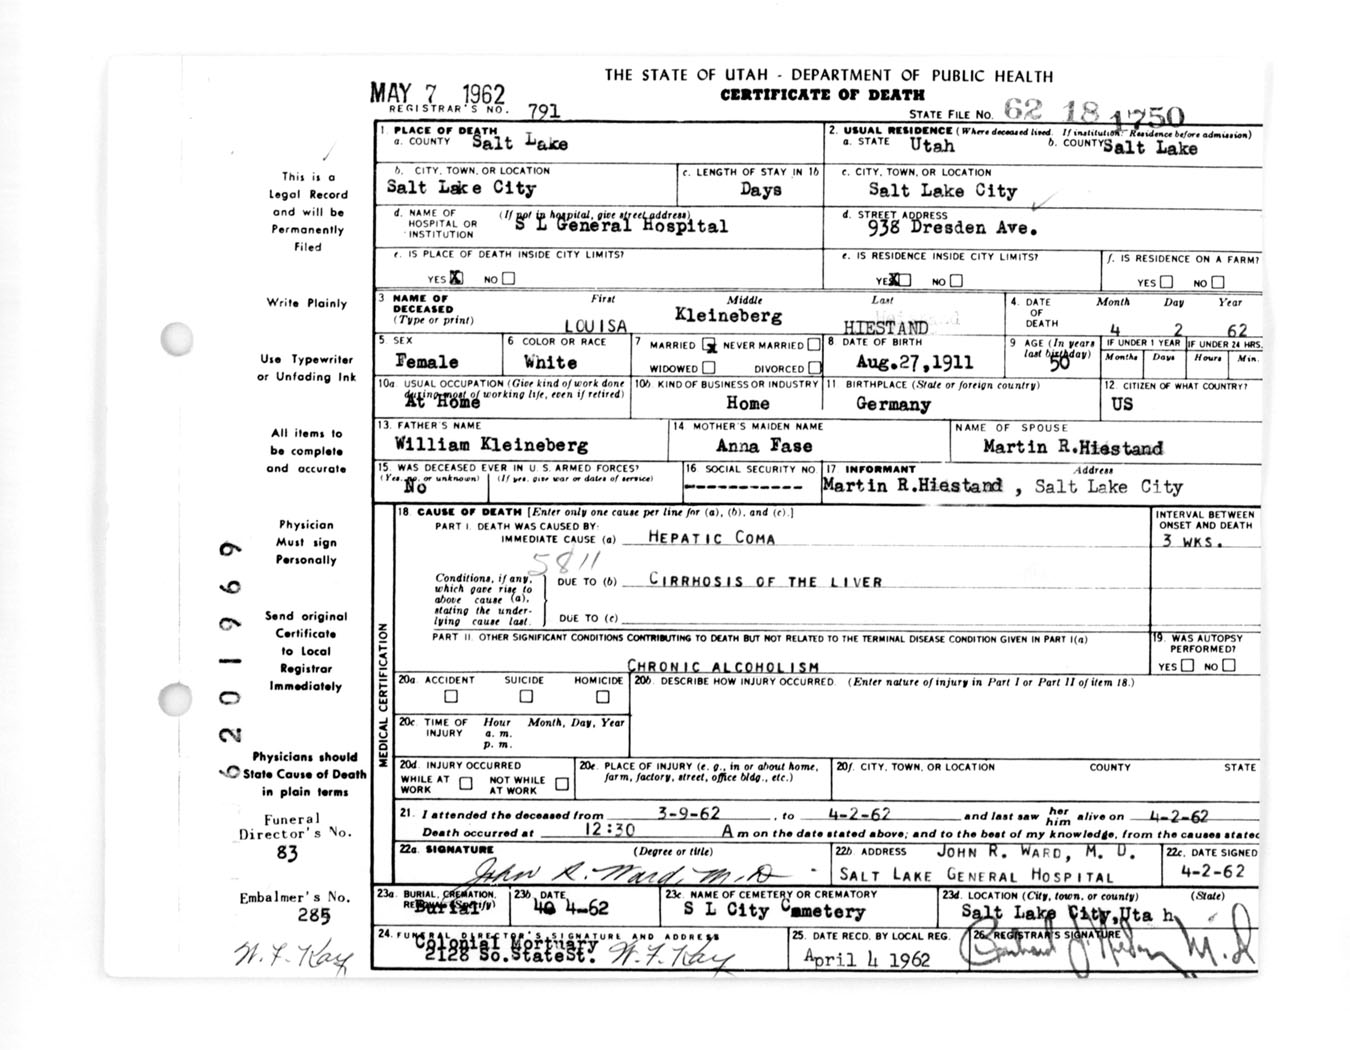 THE STATE OF UTAH - DEPARTMENT OF PUBLIC HEALTH
CERTIFICATE OF DEATH
MAY 7 1962
REGISTRAR'S NO. 791
STATE FILE NO. 62 18 1750
1. PLACE OF DEATH
a. COUNTY Salt Lake
2. USUAL RESIDENCE (Where deceased lived. If institution: Residence before admission)
a. STATE Utah b. COUNTY Salt Lake
b. CITY, TOWN, OR LOCATION
Salt Lake City
c. LENGTH OF STAY IN 1b
Days
c. CITY, TOWN, OR LOCATION
Salt Lake City
d. NAME OF HOSPITAL OR INSTITUTION (If not in hospital, give street address)
S L General Hospital
d. STREET ADDRESS
938 Dresden Ave.
e. IS PLACE OF DEATH INSIDE CITY LIMITS?
YES X NO
e. IS RESIDENCE INSIDE CITY LIMITS?
YES X NO
f. IS RESIDENCE ON A FARM?
YES NO
3 NAME OF DECEASED (Type or print)
First Middle Last
LOUISA Kleineberg HIESTAND
4. DATE OF DEATH
Month Day Year
4 2 62
5. SEX
Female
6 COLOR OR RACE
White
7 MARRIED X NEVER MARRIED
WIDOWED DIVORCED
8 DATE OF BIRTH
Aug.27,1911
9 AGE (In years last birthday)
50
IF UNDER 1 YEAR
Months Days
IF UNDER 24 HRS.
Hours Min.
10a USUAL OCCUPATION (Give kind of work done during most of working life, even if retired)
At Home
10b. KIND OF BUSINESS OR INDUSTRY
Home
11 BIRTHPLACE (State or foreign country)
Germany
12 CITIZEN OF WHAT COUNTRY?
US
13. FATHER'S NAME
William Kleineberg
14 MOTHER'S MAIDEN NAME
Anna Fase
NAME OF SPOUSE
Martin R.Hiestand
15. WAS DECEASED EVER IN U.S. ARMED FORCES?
(Yes, no, or unknown) (If yes, give war or dates of service)
No
16 SOCIAL SECURITY NO.
------------
17 INFORMANT Address
Martin R.Hiestand , Salt Lake City
18. CAUSE OF DEATH [Enter only one cause per line for (a), (b), and (c).]
INTERVAL BETWEEN ONSET AND DEATH
PART I. DEATH WAS CAUSED BY:
IMMEDIATE CAUSE (a) HEPATIC COMA
3 WKS.
5811
Conditions, if any, which gave rise to above cause (a), stating the underlying cause last.
DUE TO (b) CIRRHOSIS OF THE LIVER
DUE TO (c)
PART II. OTHER SIGNIFICANT CONDITIONS CONTRIBUTING TO DEATH BUT NOT RELATED TO THE TERMINAL DISEASE CONDITION GIVEN IN PART I(a)
CHRONIC ALCOHOLISM
19. WAS AUTOPSY PERFORMED?
YES NO
MEDICAL CERTIFICATION
20a. ACCIDENT SUICIDE HOMICIDE
20b. DESCRIBE HOW INJURY OCCURRED. (Enter nature of injury in Part I or Part II of item 18.)
20c. TIME OF INJURY
Hour Month, Day, Year
a. m.
p. m.
20d. INJURY OCCURRED
WHILE AT WORK NOT WHILE AT WORK
20e. PLACE OF INJURY (e. g., in or about home, farm, factory, street, office bldg., etc.)
20f. CITY, TOWN, OR LOCATION COUNTY STATE
21. I attended the deceased from 3-9-62, to 4-2-62 and last saw her him alive on 4-2-62
Death occurred at 12:30 A m on the date stated above; and to the best of my knowledge, from the causes stated
22a. SIGNATURE (Degree or title)
John R. Ward M.D
22b. ADDRESS JOHN R. WARD, M. D.
SALT LAKE GENERAL HOSPITAL
22c. DATE SIGNED
4-2-62
23a. BURIAL, CREMATION, REMOVAL (Specify)
Burial
23b. DATE
4-62
23c. NAME OF CEMETERY OR CREMATORY
S L City Cemetery
23d. LOCATION (City, town, or county) (State)
Salt Lake City,Uta h
24. FUNERAL DIRECTOR'S SIGNATURE AND ADDRESS
Colonial Mortuary
2128 So.StateSt. W. F. Kay
25. DATE RECD. BY LOCAL REG.
April 4 1962
26. REGISTRAR'S SIGNATURE
M.D
This is a
Legal Record
and will be
Permanently
Filed
Write Plainly
Use Typewriter
or Unfading Ink
All items to
be complete
and accurate
Physician
Must sign
Personally
Send original
Certificate
to Local
Registrar
Immediately
Physicians should
State Cause of Death
in plain terms
Funeral
Director's No.
83
Embalmer's No.
285
W. F. Kay
6201969